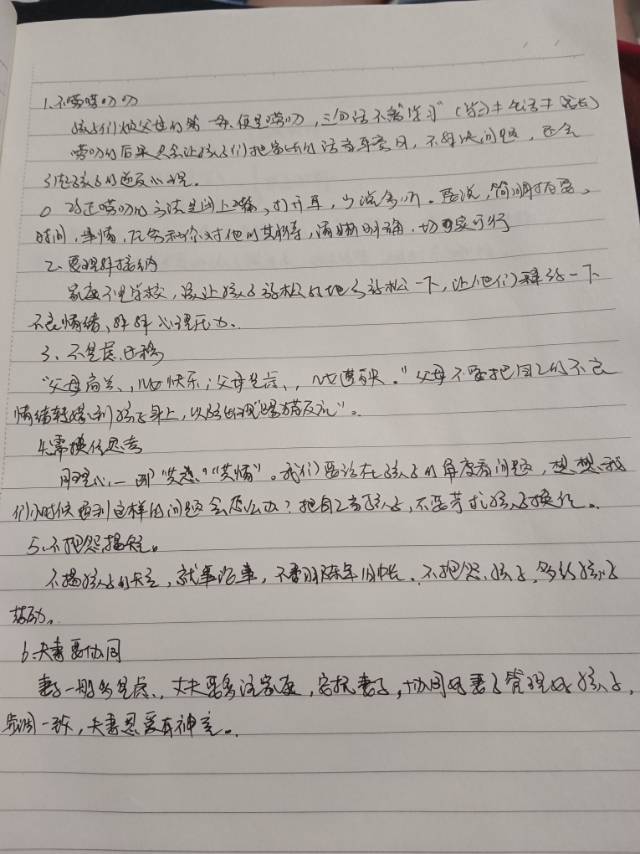 1.不唠唠叨叨
孩子们烦父母的第一毋便是唠叨,三句话不离"学习"(学习≠生活≠成长)
唠叨的后果只会让孩子们把家长的话当耳旁风,不解决问题,还会
引起孩子的逆反心理。
改正唠叨的方法是闭上嘴,打开耳,少说多听。要说,简明扼要。
时间,事情,在告知你对他的期待,清晰明确,切实可行
2.要理解接纳
家庭不是学校,该让孩子放松的地方放松一下,让他们释放一下
不良情绪,舒解心理压力。
3、不焦虑迁移
"父母高兴,心快乐;父母焦虑,心遭殃。"父母不要把自己的不良
情绪转移到孩子身上,以防出现"踢猫反应"。
4.常换位思考
同理心一即"共感""共情"。我们要站在孩子的角度看问题,想想我
们小时候遇到这样的问题会怎么办?把自己当孩子,不要苛求孩子换位。
5.不把怨揭短。
不揭孩子的短,就事论事,不要翻陈年旧帐.不抱怨孩子,多给孩子
鼓励。
6.夫妻要协同
妻子一般多焦虑,丈夫要多注家庭,安抚妻子,协同好妻子管理好孩子,
步调一致,夫妻恩爱有神童。